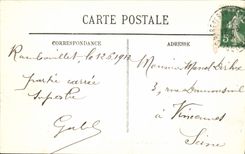 CARTE POSTALE
CORRESPONDANCE
ADRESSE
Rambouillet, le 12.6.1912
partie carrée
superbe
Gab.
Monsieur Marcel
3, rue
à Vincennes
Seine
5